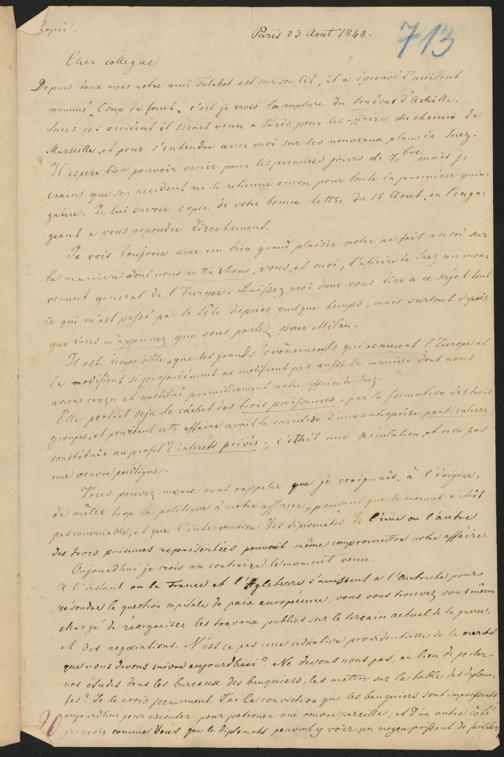 Copie.
Paris 23 Aout 1848.
713
Cher collegue
Depuis deux mois notre ami Talabot est sur son lit, il a éprouvé l'accident
nommé „Coup de fouet„ c'est je crois la rupture du tendon d'Achille.
Sans cet accident il serait venu a Paris pour les affaires du chemin de
Marseille, et pour s'entendre avec moi sur les nouveaux plans de Suez.
Il espere bien pouvoir venir pour les premiers jours de 7bre mais je
crains que son accident ne le retienne encore pour toute la premiere quin-
zaine. Je lui envoie copie de votre bonne lettre du 15 Aout, en l'enga-
geant a vous repondre directement.
Je vois toujours avec un bien grand plaisir notre parfait accord sur
la maniere dont nous rattachons, vous, et moi, l'affaire de Suez au mou-
vement general de l'Europe. Laissez moi donc vous dire a ce sujet tout
ce qui m'est passé par la tête depuis quelque temps, mais surtout depuis
que vous m'apprenez que vous partez pour Milan.
Il est impossible, que les grands évènements qui remuent l'Europe et
la modifient si profondément ne modifient pas aussi la maniere dont nous
avions conçu et constitué primitivement notre affaire de Suez.
Elle portait deja le cachet des trois puissances, par la formation des trois
groupes, et pourtant cette affaire avait le caractère d'une entreprise particuliere
constituée au profit d'interêts privés; c'était une spéculation, et non pas
une oeuvre politique.
Vous pouvez même vous rappeler que je craignais, à l'origine,
de mêler trop la politique à notre affaire, pensant que le moment n'était
pas convenable, et que l'intervention des diplomates de l'une ou l'autre
des trois puissances représentées pouvait même compromettre notre affaire
Aujourd'hui je crois au contraire le moment venu.
A l'instant ou la France et l'Angleterre s'unissent a l'Autriche pour
résoudre la question capitale de paix européenne, vous vous trouvez vous même
chargé de réorganiser les travaux publics sur le terrain actuel de la guerre,
et des negociations. N'est ce pas une indication providentielle de la marche
que nous devons suivre aujourd'hui? Ne devons nous pas, au lieu de porter
nos études dans les bureaux des banquiers, les mettre sur la table des diploma-
tes? Je le crois fermement. J'ai la conviction que les banquiers sont impuissants
aujourd'hui pour exécuter, pour patroner une oeuvre pareille, et d'un autre côté
je crois comme vous que la diplomatie peuvent y voir un moyen puissant de